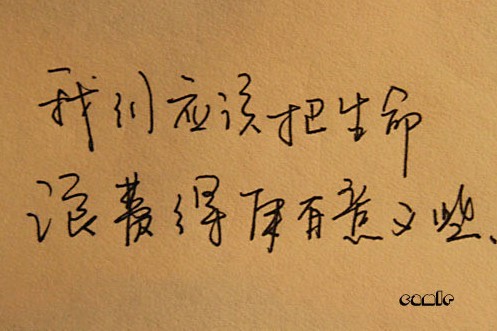 我们应该把生命
浪费得更有意义些、
comic